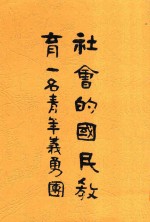 社會的國民教
育一名青年義勇團